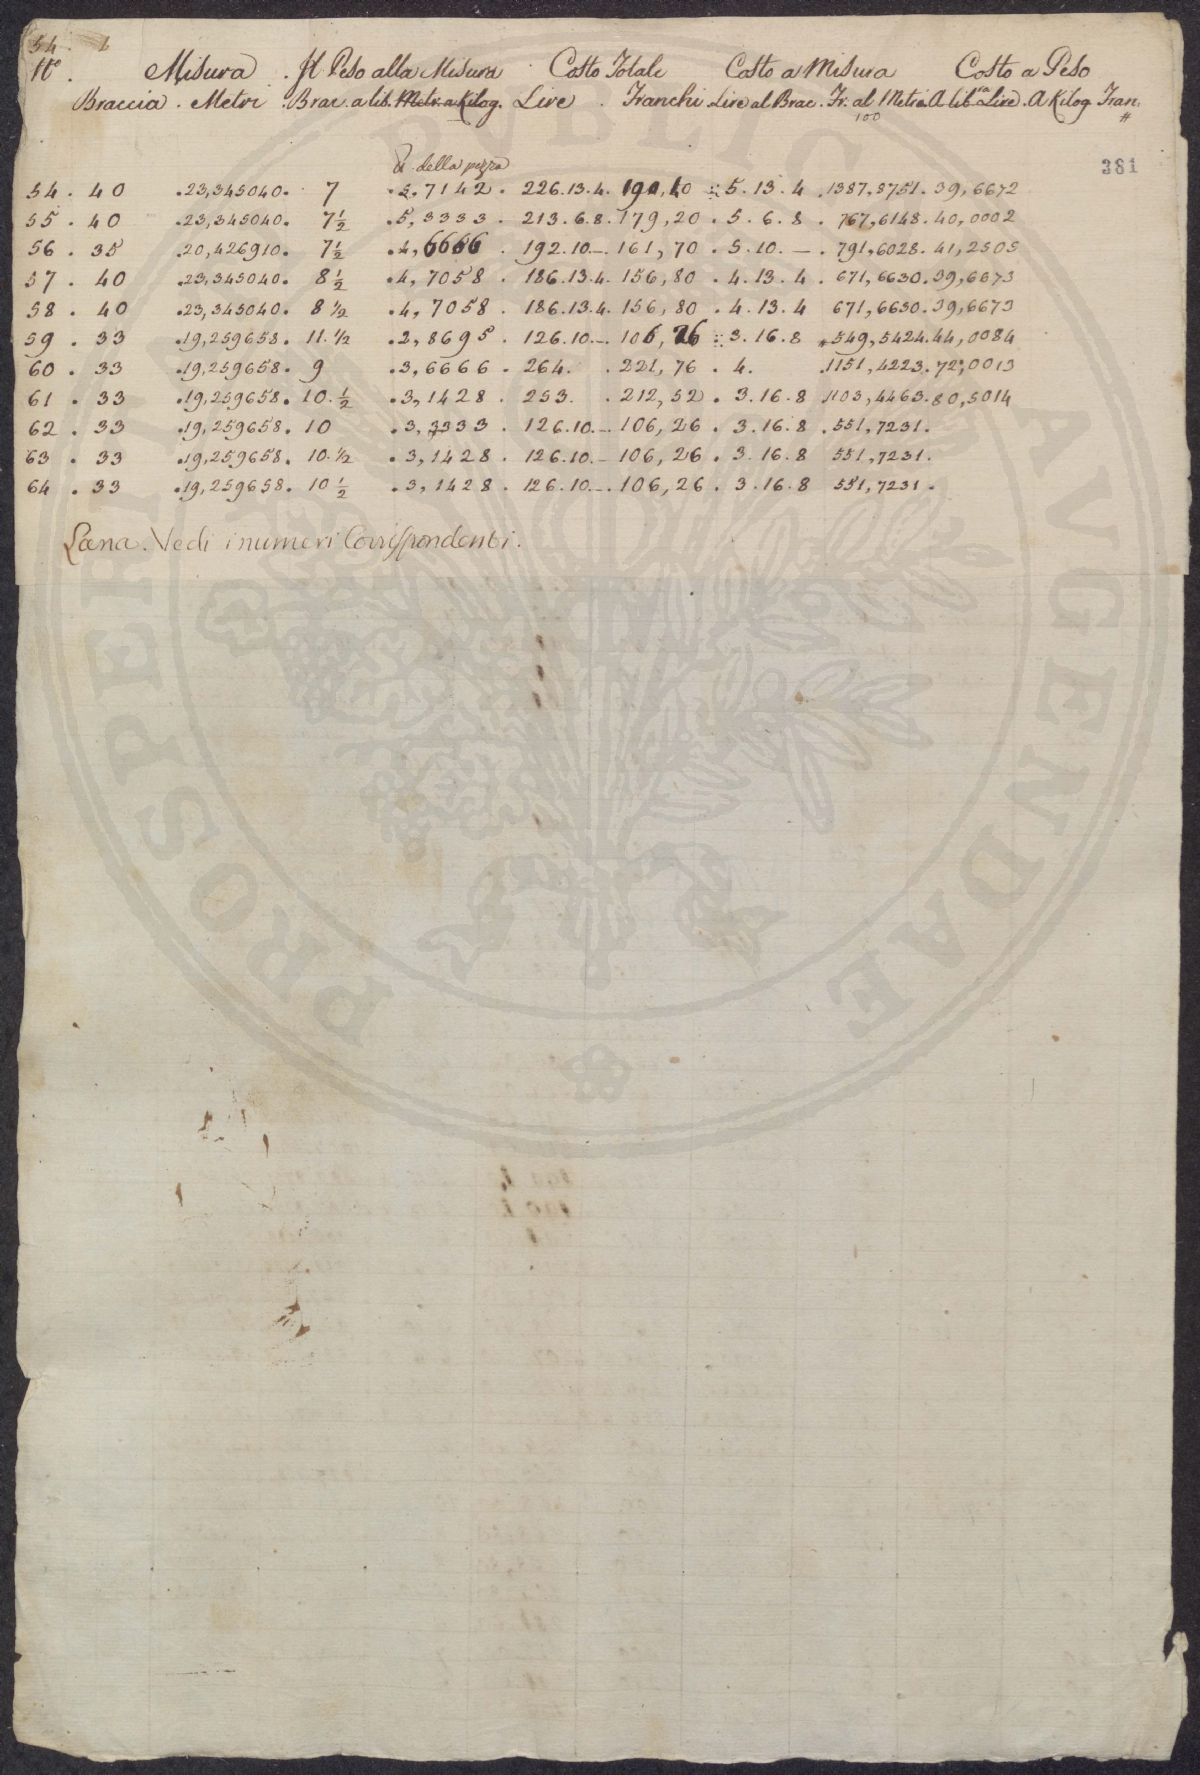 54.
No. Misura. Il Peso alla Misura Costo Totale Costo a Misura Costo a Peso
Braccia. Metri. Brac. a lib. Metr. a Kilog. Lire. Franchi. Lire al Brac. Fr. al Metro. A libra Lire. A Kilog Fran.
100
della pezza
381
54. 40 .23,345040. 7 .5,7142. 226.13.4. 190,40 5.13.4 .1387,8751. 39,6672
55. 40 .23,345040. 7 1/2 .5,3333. 213.6.8. 179,20. 5.6.8. 767,6148. 40,0002
56. 35 .20,426910. 7 1/2 .4,6666. 192.10.–. 161,70. 5.10.–. 791,6028. 41,2505
57. 40 .23,345040. 8 1/2 .4,7058. 186.13.4. 156,80. 4.13.4. 671,6630. 39,6673
58. 40 .23,345040. 8 1/2 .4,7058. 186.13.4. 156,80. 4.13.4 671,6630. 39,6673
59. 33 .19,259658. 11. 1/2 .2,8695. 126.10.–. 106,26 3.16.8 549,5424. 44,0084
60. 33 .19,259658. 9 .3,6666. 264. .221,76. 4. .1151,4223. 72,0013
61. 33 .19,259658. 10. 1/2 .3,1428. 253. .212,52. 3.16.8 1103,4463. 80,5014
62. 33 .19,259658. 10 .3,3333. 126.10.–. 106,26. 3.16.8. 551,7231.
63. 33 .19,259658. 10. 1/2 .3,1428. 126.10.– 106,26. 3.16.8 551,7231.
64. 33 .19,259658. 10 1/2 .3,1428. 126.10.–. 106,26. 3.16.8 551,7231.
Lana. Vedi i numeri Corrispondenti.
PROSPERITATI PUBLICAE AVGENDAE